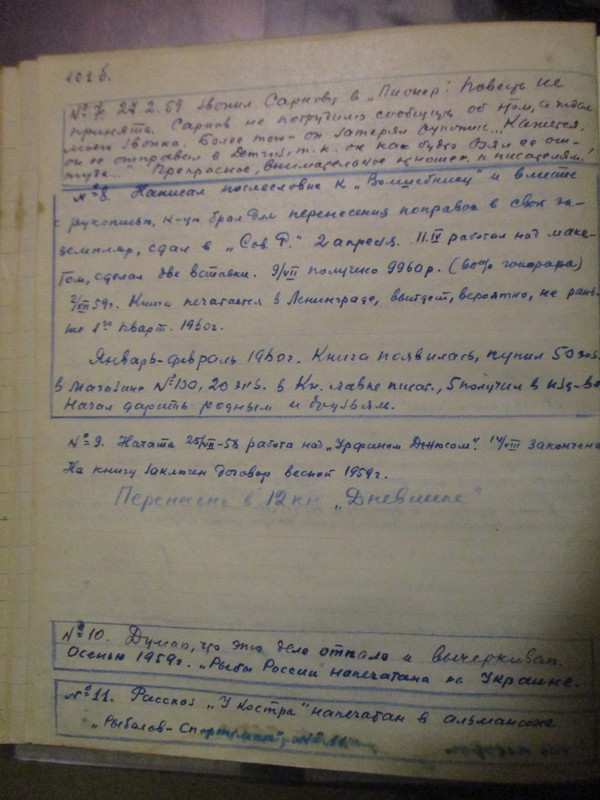 101 б.
№ 7. 27.2.59 звонил Сарнову в „Пионер": повесть не
принята. Сарнов не потрудился сообщить об этом, и ждал
моего звонка. Более того – он затерял рукопись... Кажется,
он ее отправил в Детгиз, т.к. он как будто взял ее от-
туда..." Прекрасное, внимательное отношение к писателям!
№ 8. Написал послесловие к „Волшебнику" и вместе
с рукописью, к-ую брал для перенесения поправок в свой эк-
земпляр, сдал в „Сов. Р." 2 апреля. 11.IV работал над маке-
том, сделал две вставки. 9/VII получено 9960 р. (60% гонорара)
2/VII 59г. Книга печатается в Ленинграде, выйдет, вероятно, не рань-
ше 1го кварт. 1960г.
Январь-февраль 1960г. Книга появилась, купил 50 экз.
в магазине № 130, 20 экз. в Кн. лавке писат., 5 получил в изд-ве
Начал дарить родным и друзьям.
№ 9. Начата 25/VII-58 работа над „Урфином Джюсом". 14/VIII закончена
На книгу заключен договор весной 1959г.
Перенесено в 12 кн. „Дневника"
№ 10. Думаю, что это дело отпало и вычеркиваю.
Осенью 1959г. „Рыбы России" напечатана на Украине.
№ 11. Рассказ „У костра" напечатан в альманахе
„Рыболов-Спортсмен", № 11